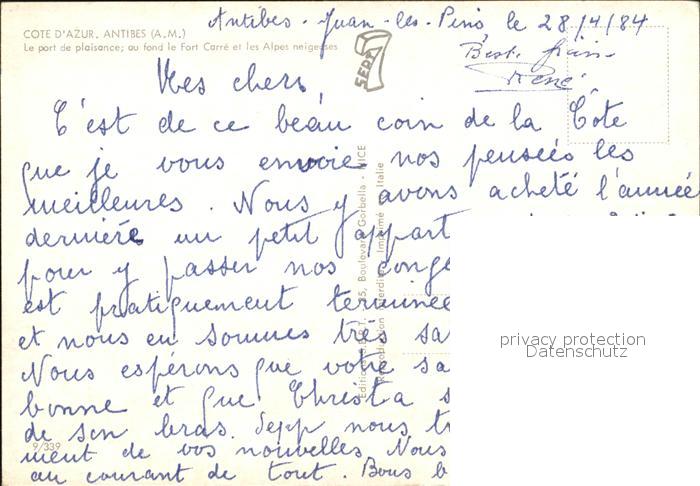 Antibes - Juan-les-Pins le 28/4/84
COTE D'AZUR. ANTIBES (A.M.)
Le port de plaisance; au fond le Fort Carré et les Alpes neigeuses
SEPT
René
Mes chers,
C'est de ce beau coin de la Côte
que je vous envoie nos pensées les
meilleures. Nous y avons acheté l'année
dernière un petit appart
pour y passer nos conge
est pratiquement terminée
et nous en sommes très sa
Nous espérons que votre sa
bonne et que Christa s
de son bras. Sepp nous t
9/339
ment de vos nouvelles Nous
au courant de tout. Bous b
Boulevard Gorbella - NICE
Reproduction interdite Imprimé en Italie
privacy protection
Datenschutz